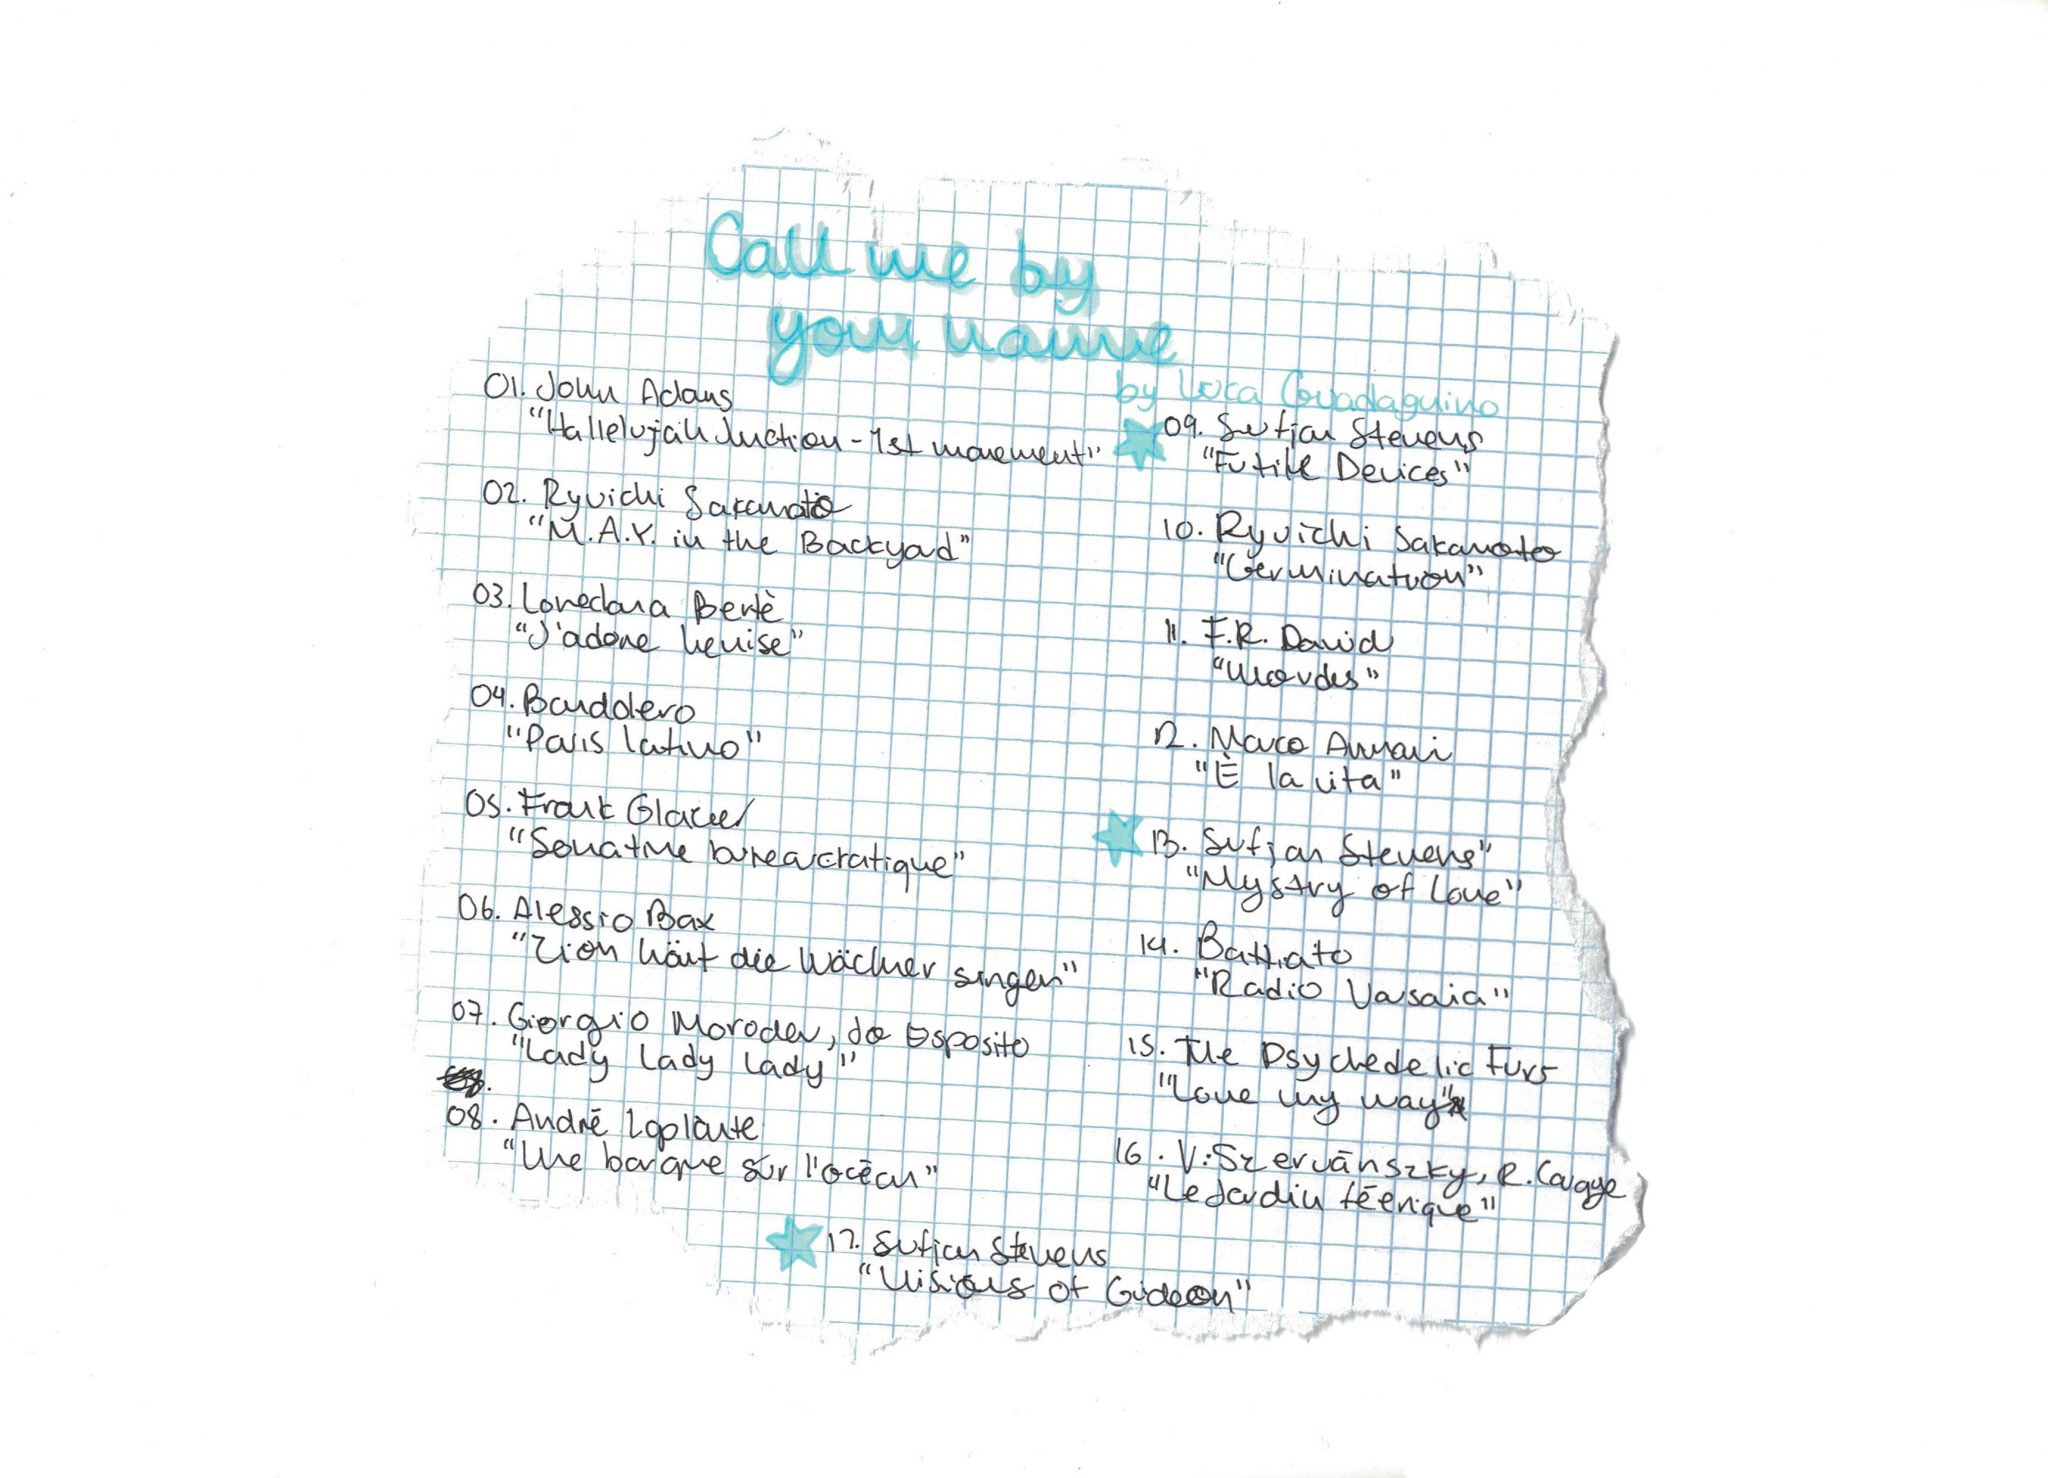 Call me by
your name
by Luca Guadagnino
01. John Adams
"Hallelujah Junction - 1st movement"
02. Ryuichi Sakamoto
"M.A.Y. in the Backyard"
03. Loredana Bertè
"J'adore Venise"
04. Bandolero
"Paris latino"
05. Frank Glazer
"Sonatine bureaucratique"
06. Alessio Bax
"Zion hört die Wächter singen"
07. Giorgio Moroder, Jo Esposito
"Lady Lady Lady"
08. André Laplante
"Une barque sur l'océan"
09. Sufjan Stevens
"Futile Devices"
10. Ryuichi Sakamoto
"Germination"
11. F.R. David
"Words"
12. Marco Armani
"È la vita"
13. Sufjan Stevens"
"Mystry of Love"
14. Battiato
"Radio Varsavia"
15. The Psychedelic Furs
"Love my way"
16. V. Szervánszky, R. Cavaye
"Le Jardin féerique"
17. Sufjan Stevens
"Visions of Gideon"